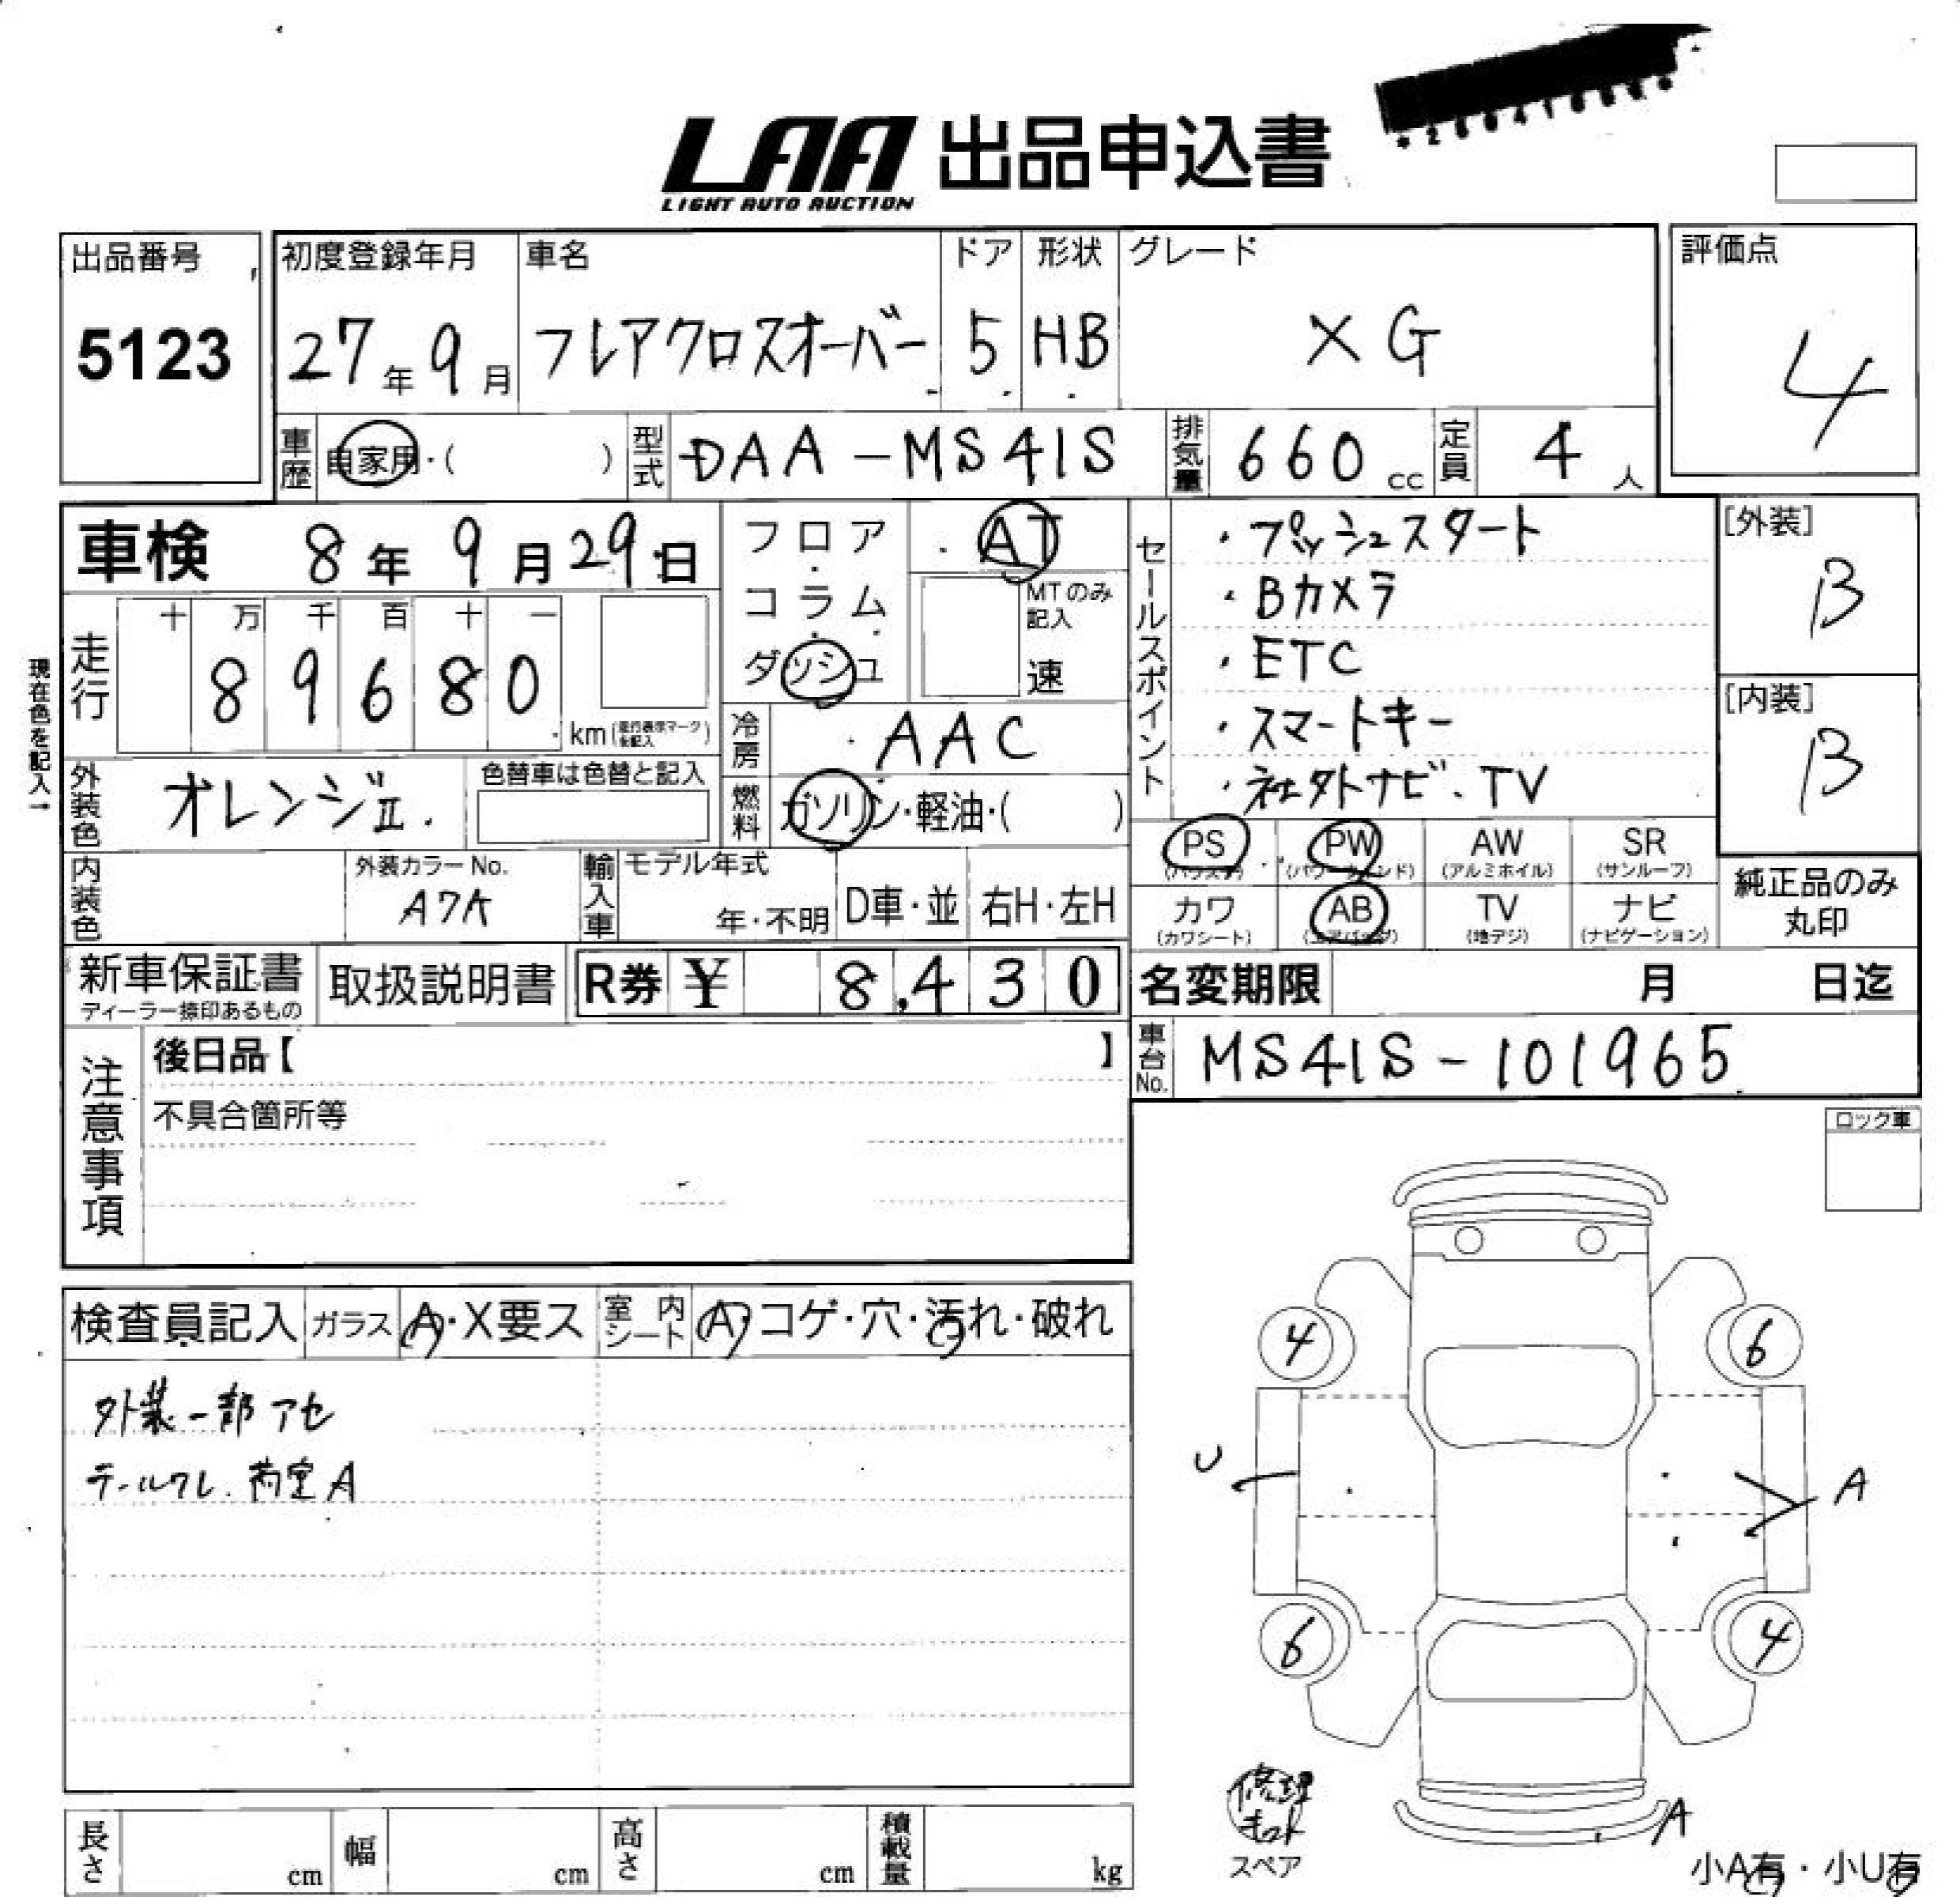 LAA 出品申込書
LIGHT AUTO AUCTION
出品番号
5123
初度登録年月
27年9月
車名
フレアクロスオーバー
ドア
5
形状
HB
グレード
XG
評価点
4
車歴
自家用・( )
型式
DAA-MS41S
排気量
660 cc
定員
4 人
車検 8年9月29日
フロア・
コラム・
ダッシュ
AT
MTのみ記入
速
セールスポイント
・プッシュスタート
・Bカメラ
・ETC
・スマートキー
・社外ナビ・TV
[外装]
B
[内装]
B
現在色を記入→
走行
十 万 千 百 十 一
8 9 6 8 0
km(走行表示マークを記入)
冷房
AAC
外装色
オレンジⅡ.
色替車は色替と記入
燃料
ガソリン・軽油・( )
PS
(パワステ)
PW
(パワーウィンド)
AW
(アルミホイル)
SR
(サンルーフ)
カワ
(カワシート)
AB
(エアバッグ)
TV
(地デジ)
ナビ
(ナビゲーション)
純正品のみ
丸印
内装色
外装カラーNo.
A7A
輸入車
モデル年式
年・不明
D車・並
右H・左H
新車保証書
ディーラー捺印あるもの
取扱説明書
R券 ¥ 8,430
名変期限 月 日迄
車台No.
MS41S-101965
注意事項
後日品【 】
不具合箇所等
ロック車
検査員記入
ガラス
A・X要ス
室内シート
A・コゲ・穴・汚れ・破れ
外装一部アセ
テールワレ.荷室A
4
6
U
A
6
4
修理キット
スペア
A
小A有・小U有
長さ cm
幅 cm
高さ cm
積載量 kg